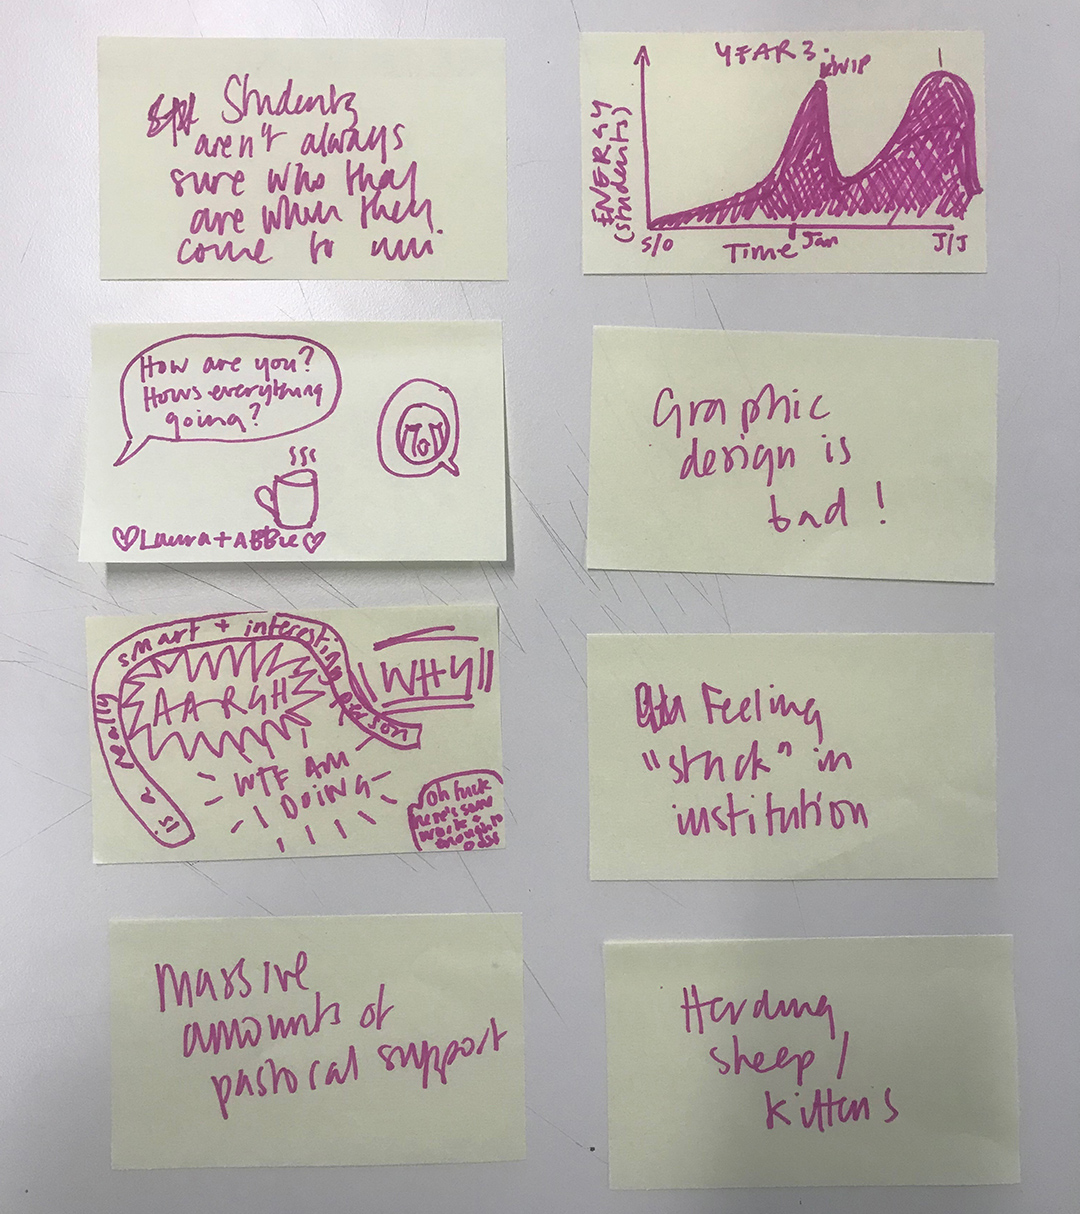 Students
aren't always
sure who they
are when they
come to uni.
YEAR 3.
WIP
ENERGY
(students)
S/O
Time
Jan
J/J
How are you?
Hows everything
going?
Laura + ABBIE
Graphic
design is
bad!
is a really smart + interesting person
AARGH
WHY
WTF AM
I DOING
Oh fuck
here's some
work
enough to
Feeling
"stuck" in
institution
Massive
amounts of
pastoral support
Herding
sheep /
kittens